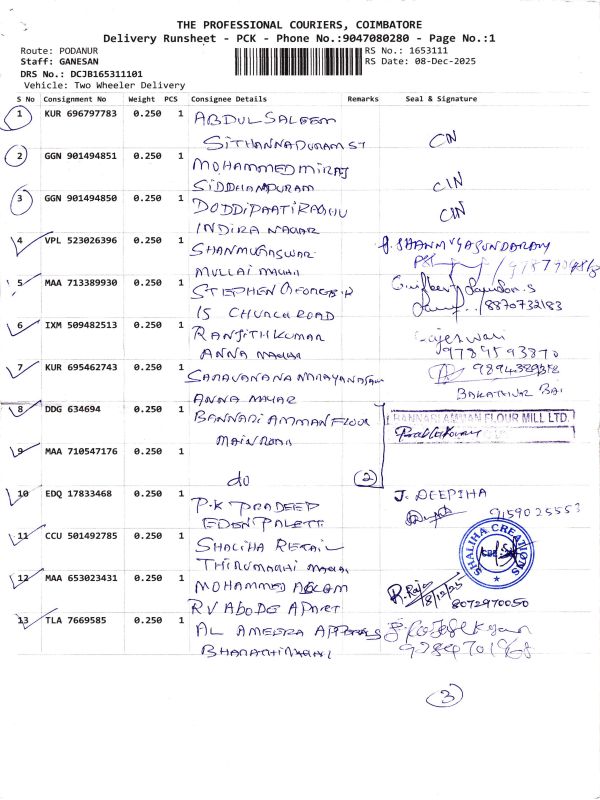 THE PROFESSIONAL COURIERS, COIMBATORE
Delivery Runsheet - PCK - Phone No.:9047080280 - Page No.:1
Route: PODANUR RS No.: 1653111
Staff: GANESAN RS Date: 08-Dec-2025
DRS No.: DCJB165311101
Vehicle: Two Wheeler Delivery
S No Consignment No Weight PCS Consignee Details Remarks Seal & Signature
1 KUR 696797783 0.250 1 ABDUL SALEEM
SITHANNADURAM ST CIN
2 GGN 901494851 0.250 1 MOHAMMED MIRAJ
SIDDHANPURAM CIN
3 GGN 901494850 0.250 1 DODDIPAATI RAGHU CIN
INDIRA NAGAR
4 VPL 523026396 0.250 1 SHANMUGASWAR SHANMUGASUNDARAM
MULLAI NAGAR
5 MAA 713389930 0.250 1 STEPHEN GEORGE
15 CHURCH ROAD 8870732183
6 IXM 509482513 0.250 1 RANJITH KUMAR
ANNA NAGAR 9789593870
7 KUR 695462743 0.250 1 SARAVANANA NARAYANASAM
ANNA NAGAR
8 DDG 634694 0.250 1 BANNARI AMMAN FLOUR BANNARI AMMAN FLOUR MILL LTD.
MAIN ROAD
9 MAA 710547176 0.250 1
do 2
10 EDQ 17833468 0.250 1 P.K PRADEEP J. DEEPIHA
EDEN PALETE 9159025553
11 CCU 501492785 0.250 1 SHALIHA RETAIL SHALIHA CREATIONS
THIRUMARHI NAGAR
12 MAA 653023431 0.250 1 MOHAMMED ASLAM
RV ABODE APART 8072970050
13 TLA 7669585 0.250 1 AL AMEERA APPERALS
BHARATHI NAGAR
3